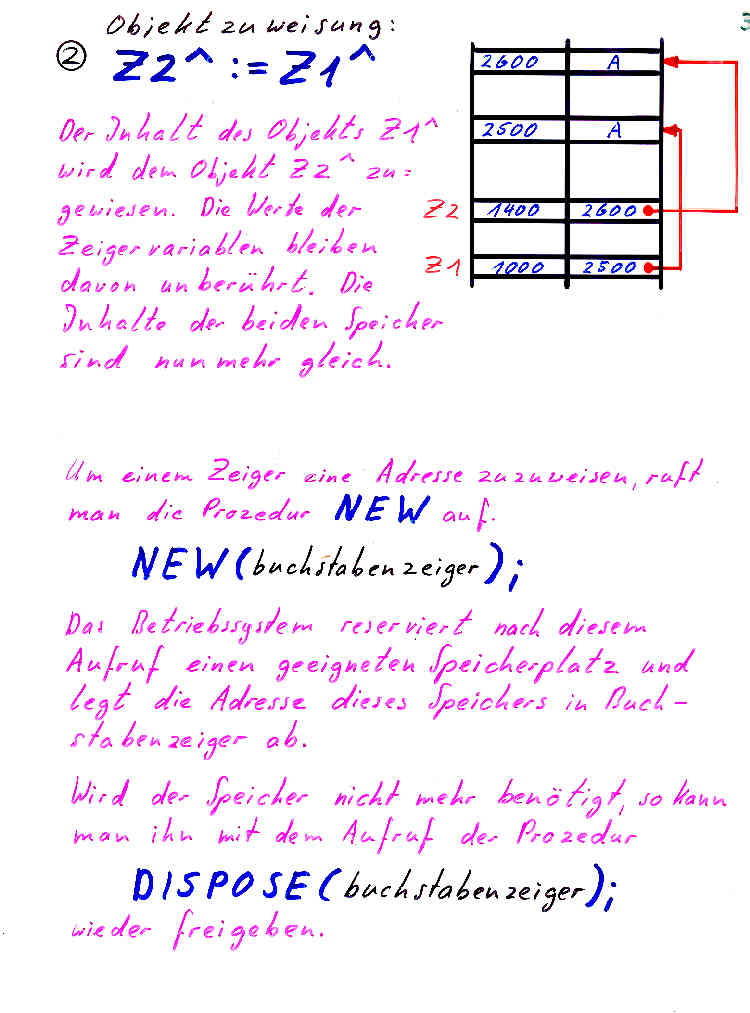 Objektzuweisung:
② Z2^ := Z1^
Der Inhalt des Objekts Z1^
wird dem Objekt Z2^ zu=
gewiesen. Die Werte der
Zeigervariablen bleiben
davon unberührt. Die
Inhalte der beiden Speicher
sind nunmehr gleich.
3
2600 A
2500 A
Z2 1400 2600
Z1 1000 2500
Um einem Zeiger eine Adresse zuzuweisen, ruft
man die Prozedur NEW auf.
NEW(buchstabenzeiger);
Das Betriebssystem reserviert nach diesem
Aufruf einen geeigneten Speicherplatz und
legt die Adresse dieses Speichers in Buch-
stabenzeiger ab.
Wird der Speicher nicht mehr benötigt, so kann
man ihn mit dem Aufruf der Prozedur
DISPOSE(buchstabenzeiger);
wieder freigeben.